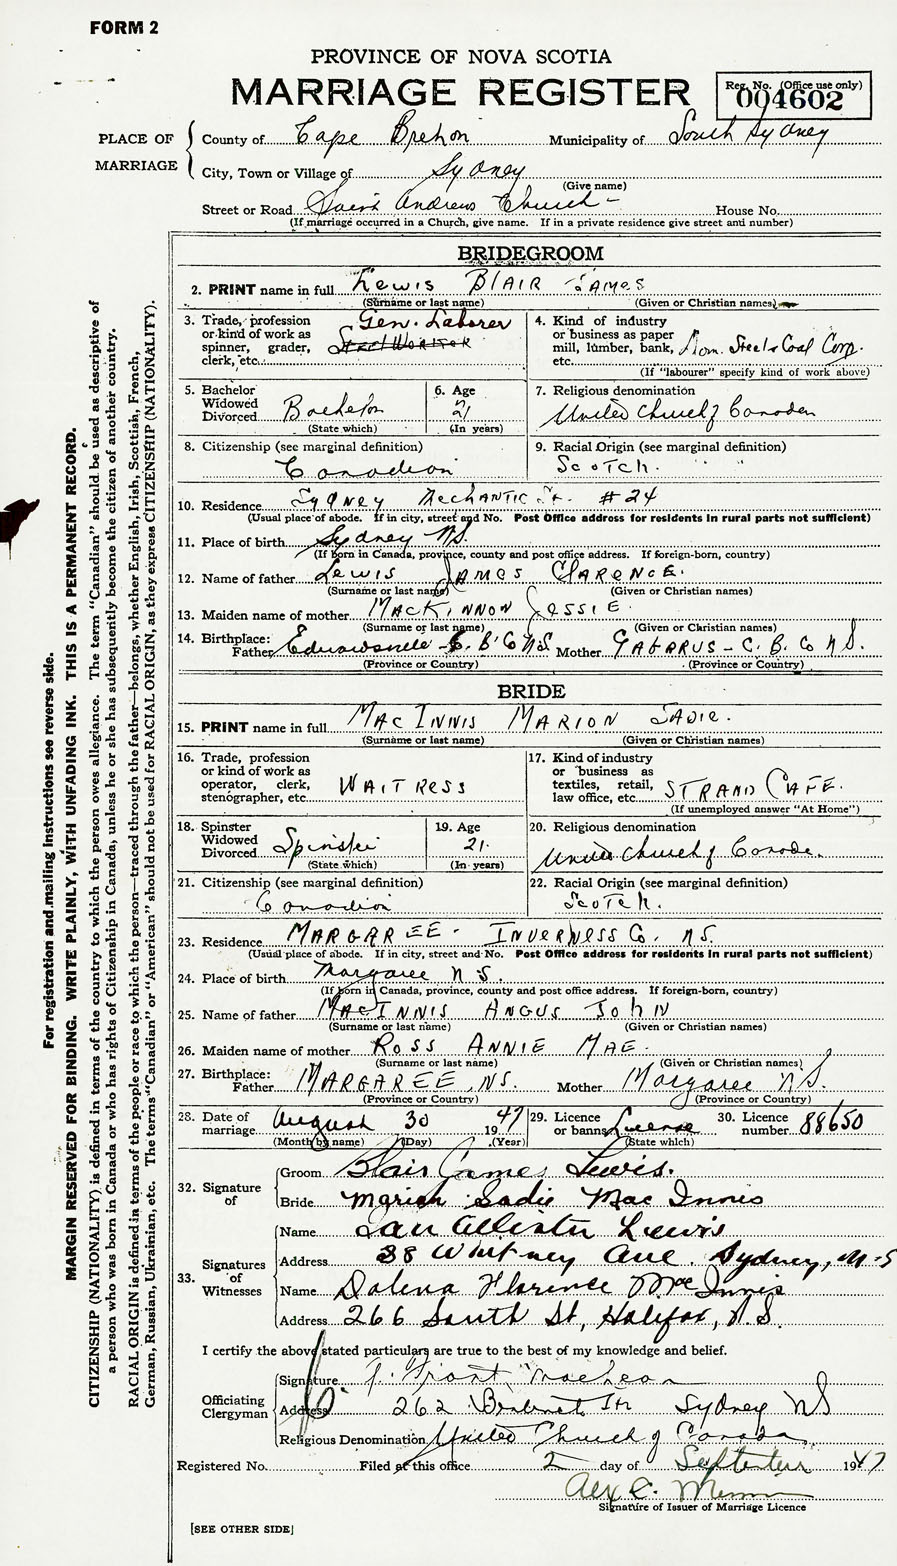 FORM 2
PROVINCE OF NOVA SCOTIA
MARRIAGE REGISTER
Reg. No. (Office use only)
004602
PLACE OF MARRIAGE
County of Cape Breton Municipality of South Sydney
City, Town or Village of Sydney
(Give name)
Street or Road Saint Andrews Church House No.
(If marriage occurred in a Church, give name. If in a private residence give street and number)
BRIDEGROOM
2. PRINT name in full LEWIS BLAIR JAMES
(Surname or last name) (Given or Christian names)
3. Trade, profession or kind of work as spinner, grader, clerk, etc. Gen. Laborer Steel Worker
4. Kind of industry or business as paper mill, lumber, bank, etc. Dom. Steel & Coal Corp.
(If "labourer" specify kind of work above)
5. Bachelor Widowed Divorced Bachelor
(State which)
6. Age 21
(In years)
7. Religious denomination United Church of Canada
8. Citizenship (see marginal definition) Canadian
9. Racial Origin (see marginal definition) Scotch.
10. Residence SYDNEY St. #24
(Usual place of abode. If in city, street and No. Post Office address for residents in rural parts not sufficient)
11. Place of birth Sydney N.S.
(If born in Canada, province, county and post office address. If foreign-born, country)
12. Name of father LEWIS JAMES CLARENCE.
(Surname or last name) (Given or Christian names)
13. Maiden name of mother MACKINNON JESSIE.
(Surname or last name) (Given or Christian names)
14. Birthplace: Father Edwardsville - C.B. Co N.S. Mother GABARUS - C.B. Co N.S.
(Province or Country) (Province or Country)
BRIDE
15. PRINT name in full MAC INNIS MARION SADIE.
(Surname or last name) (Given or Christian names)
16. Trade, profession or kind of work as operator, clerk, stenographer, etc. WAITRESS
17. Kind of industry or business as textiles, retail, law office, etc. STRAND CAFE.
(If unemployed answer "At Home")
18. Spinster Widowed Divorced Spinster
(State which)
19. Age 21.
(In years)
20. Religious denomination United Church of Canada.
21. Citizenship (see marginal definition) Canadian
22. Racial Origin (see marginal definition) Scotch.
23. Residence MARGAREE - INVERNESS Co. N.S.
(Usual place of abode. If in city, street and No. Post Office address for residents in rural parts not sufficient)
24. Place of birth Margaree N.S.
(If born in Canada, province, county and post office address. If foreign-born, country)
25. Name of father MAC INNIS ANGUS JOHN
(Surname or last name) (Given or Christian names)
26. Maiden name of mother ROSS ANNIE MAE.
(Surname or last name) (Given or Christian names)
27. Birthplace: Father MARGAREE, N.S. Mother Margaree N.S.
(Province or Country) (Province or Country)
28. Date of marriage August 30 1947
(Month by name) (Day) (Year)
29. Licence or banns License
(State which)
30. Licence number 88650
32. Signature of
Groom Blair James Lewis.
Bride Marion Sadie Mac Innis
33. Signatures of Witnesses
Name Ian Allister Lewis
Address 38 Whitney Ave. Sydney, N.S
Name Dolena Florence McInnis
Address 266 South St, Halifax, N.S.
I certify the above stated particulars are true to the best of my knowledge and belief.
Officiating Clergyman
Signature Grant MacLean
Address 262 St Sydney NS
Religious Denomination United Church of Canada
Registered No. Filed at this office 2 day of September 1947
Alex C.
Signature of Issuer of Marriage Licence
[SEE OTHER SIDE]
For registration and mailing instructions see reverse side.
MARGIN RESERVED FOR BINDING. WRITE PLAINLY, WITH UNFADING INK. THIS IS A PERMANENT RECORD.
CITIZENSHIP (NATIONALITY) is defined in terms of the country to which the person owes allegiance. The term "Canadian" should be used as descriptive of
a person who was born in Canada or who has rights of Citizenship in Canada, unless he or she has subsequently become the citizen of another country.
RACIAL ORIGIN is defined in terms of the people or race to which the person—traced through the father—belongs, whether English, Irish, Scottish, French,
German, Russian, Ukrainian, etc. The terms "Canadian" or "American" should not be used for RACIAL ORIGIN, as they express CITIZENSHIP (NATIONALITY).